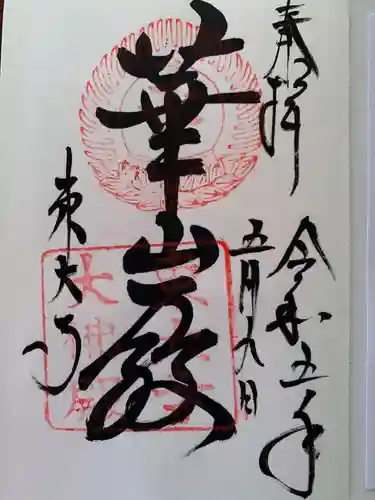 奉拝
令和五年
五月九日
華嚴
東大寺